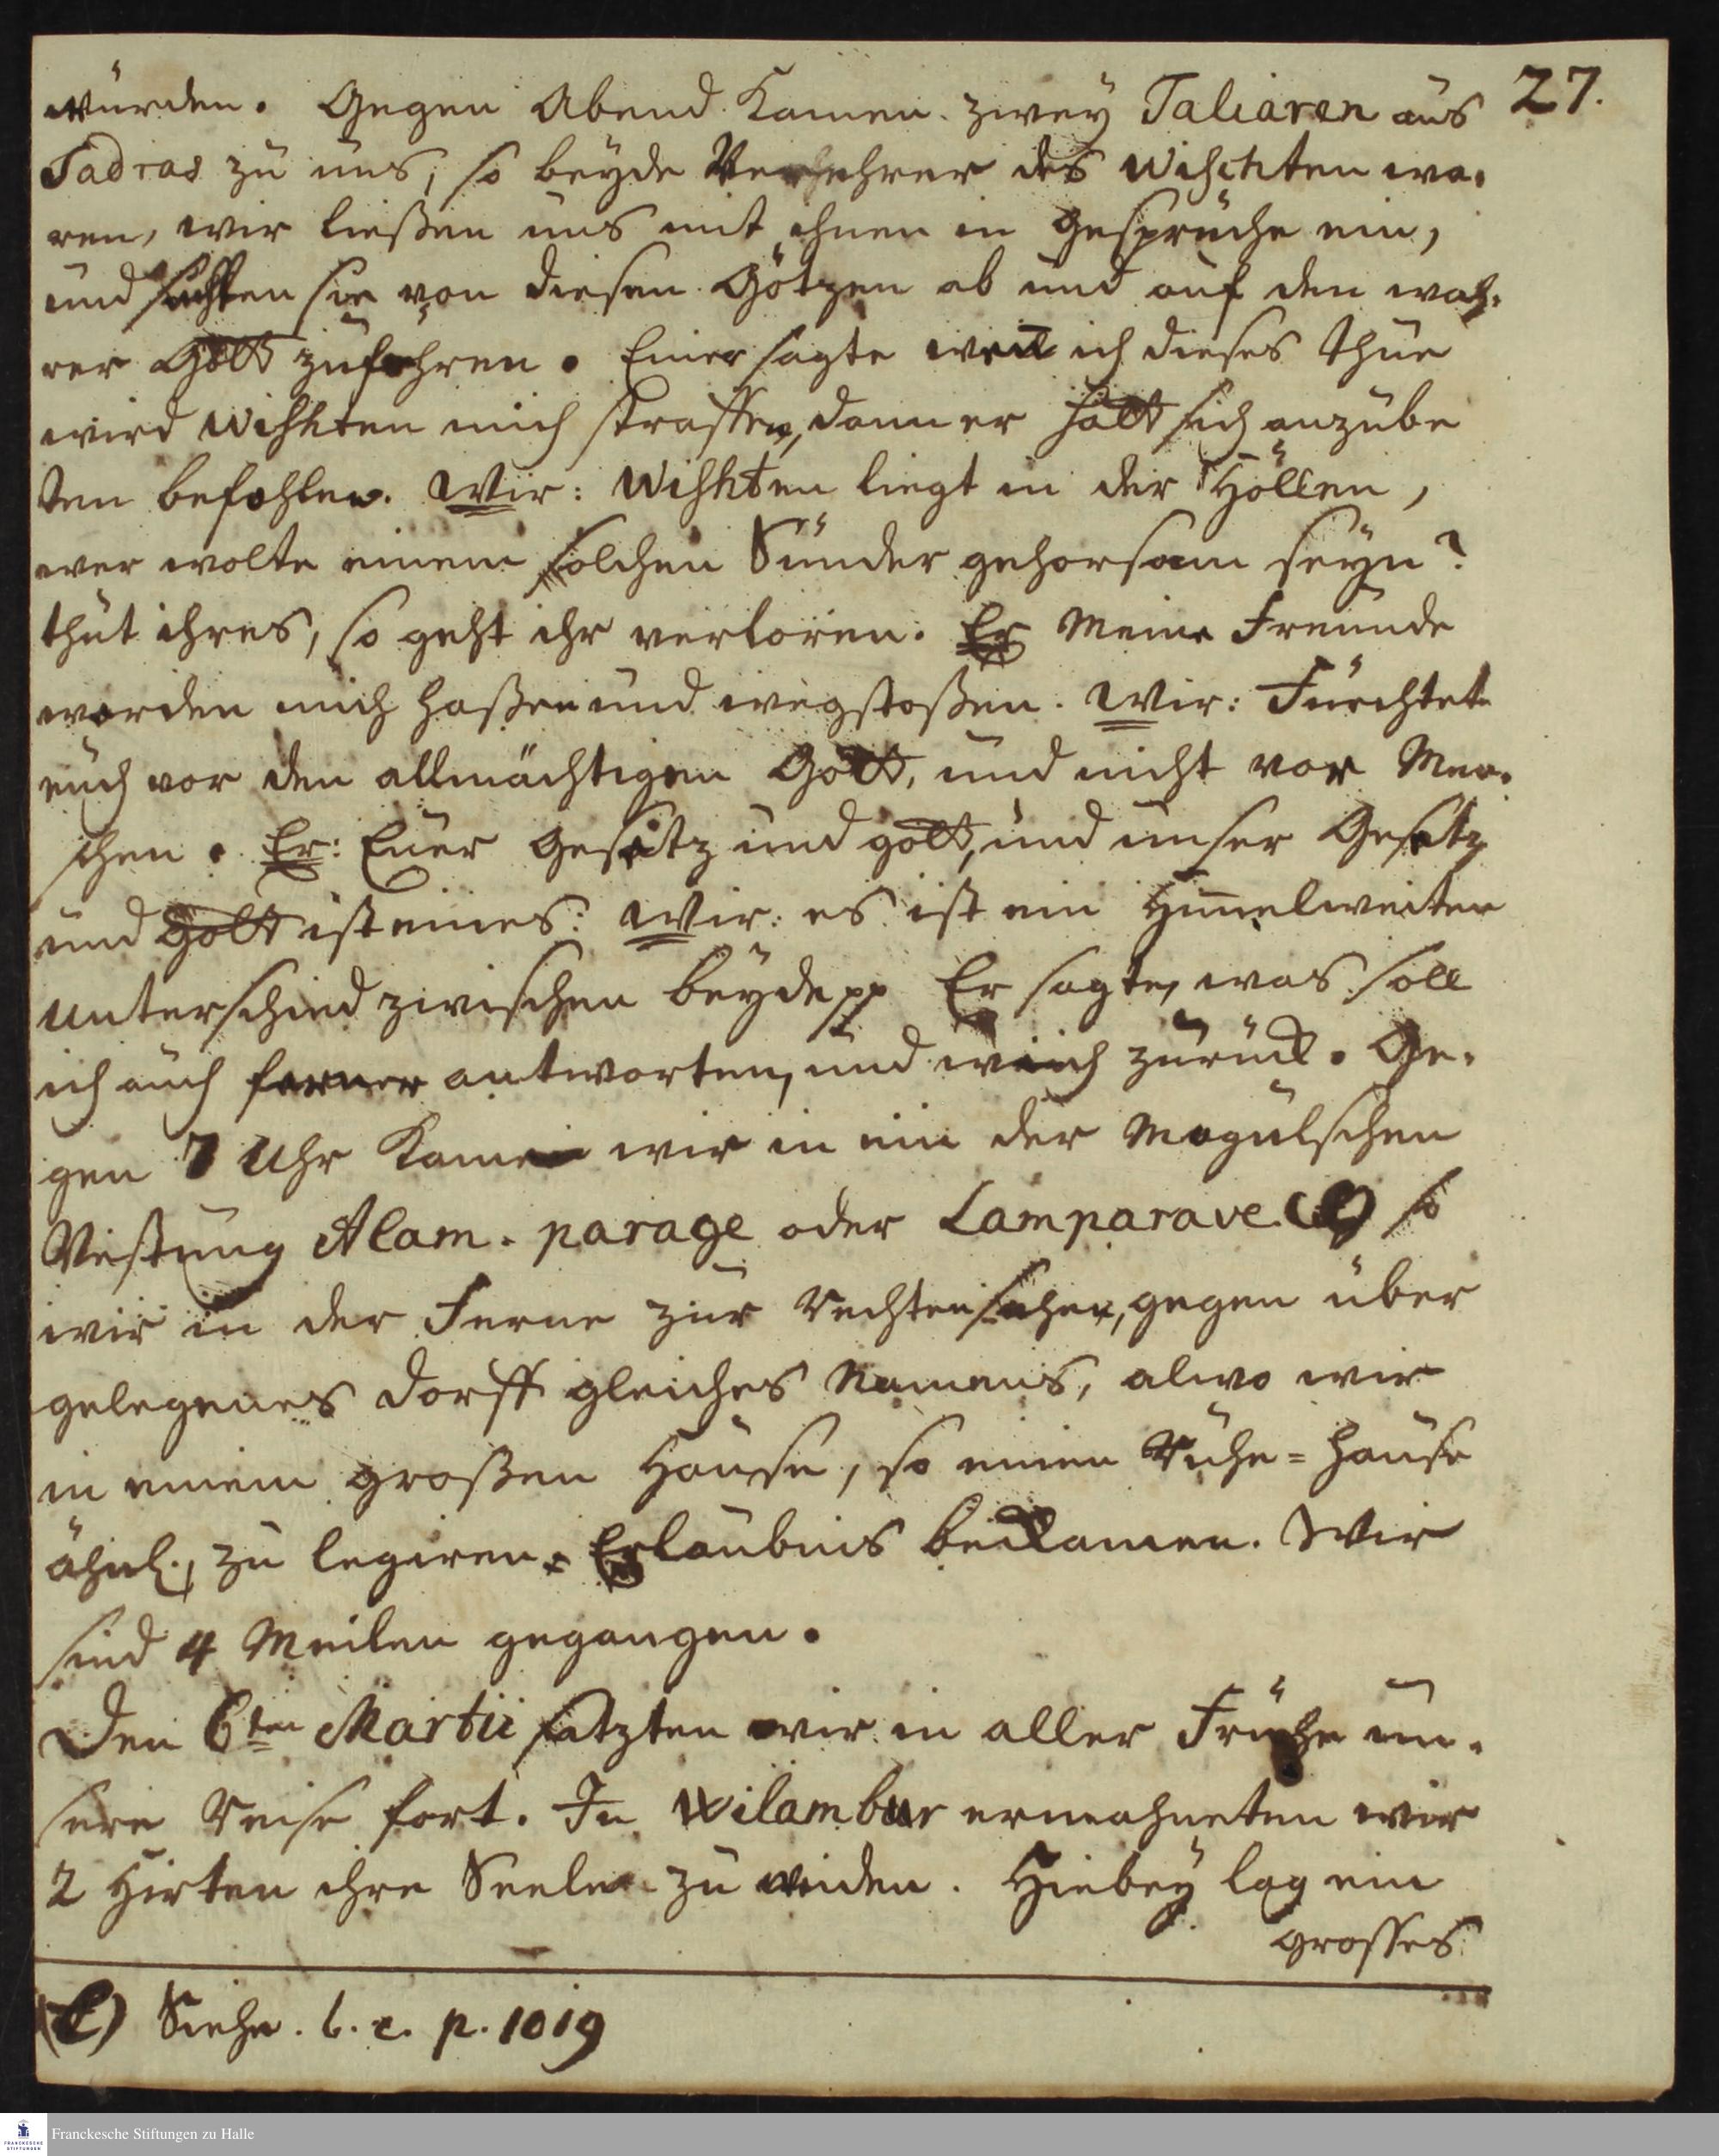 27.
würden. Gegen Abend kamen zwey Taliaren aus
Sadras zu uns, so beyde Verehrer des Wischten wa-
ren, wir ließen uns mit ihnen in Gespräche ein,
und suchten sie von diesen Götzen ab und auf den wah-
ren Gott zuführen. Einer sagte weil ich dieses thue
wird Wishten mich straffen, dann er hatt sich anzube
ten befohlen. Wir: Wishten liegt in der Höllen,
wer wolte einem solchen Sünder gehorsam seyn?
thut ihres, so geht ihr verloren. Er Meine Freunde
werden mich haßen und wegstoßen. Wir: Fürchtet
euch vor den allmächtigen Gott, und nicht vor Men-
schen. Er: Euer Gesetz und gott, und unser Gesetz
und Gott ist eines. Wir: es ist ein Him̅elweiter
Unterschied zwischen beyde pp Er sagte, was soll
ich auch ferner antworten, und wich zurück. Ge-
gen 7 Uhr kamen wir in ein der Mogulschen
Vestung Alam-parage oder Lamparave (e) so
wir in der Ferne zur Rechten sahen, gegen über
gelegenes Dorff gleiches Namens, alwo wir
in einem großen Hause, so einen Ruhe-hause
ähnl., zu logiren Erlaubnis bekamen. Wir
sind 4 Meilen gegangen.
Den 6ten Martii setzten wir in aller Frühe un-
sere Reise fort. In Wilambur ermahneten wir
2 Hirten ihre Seelen zu weiden. Hiebey lag ein
grosses
(e) Siehe. l. c. p. 1019
Franckesche Stiftungen zu Halle